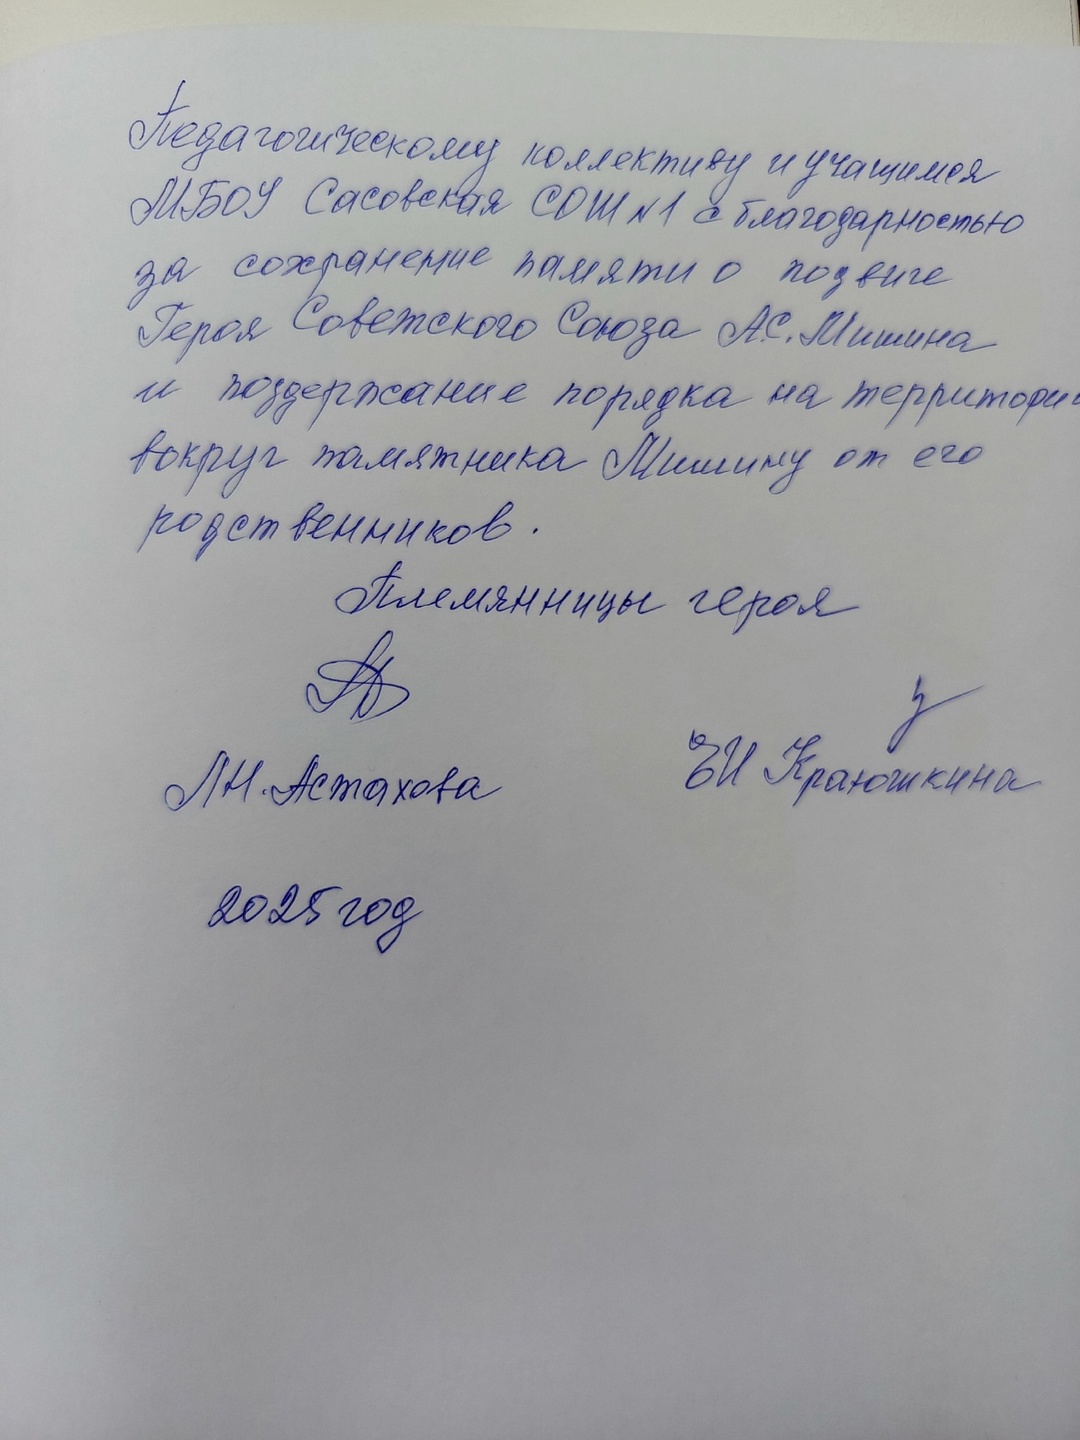 Педагогическому коллективу и учащимся
МБОУ Сасовская СОШ №1 с благодарностью
за сохранение памяти о подвиге
Героя Советского Союза А.С. Мишина
и поддержание порядка на территории
вокруг памятника Мишину от его
родственников.
Племянницы героя
Л Н. Астахова ЕИ Краюшкина
2025 год